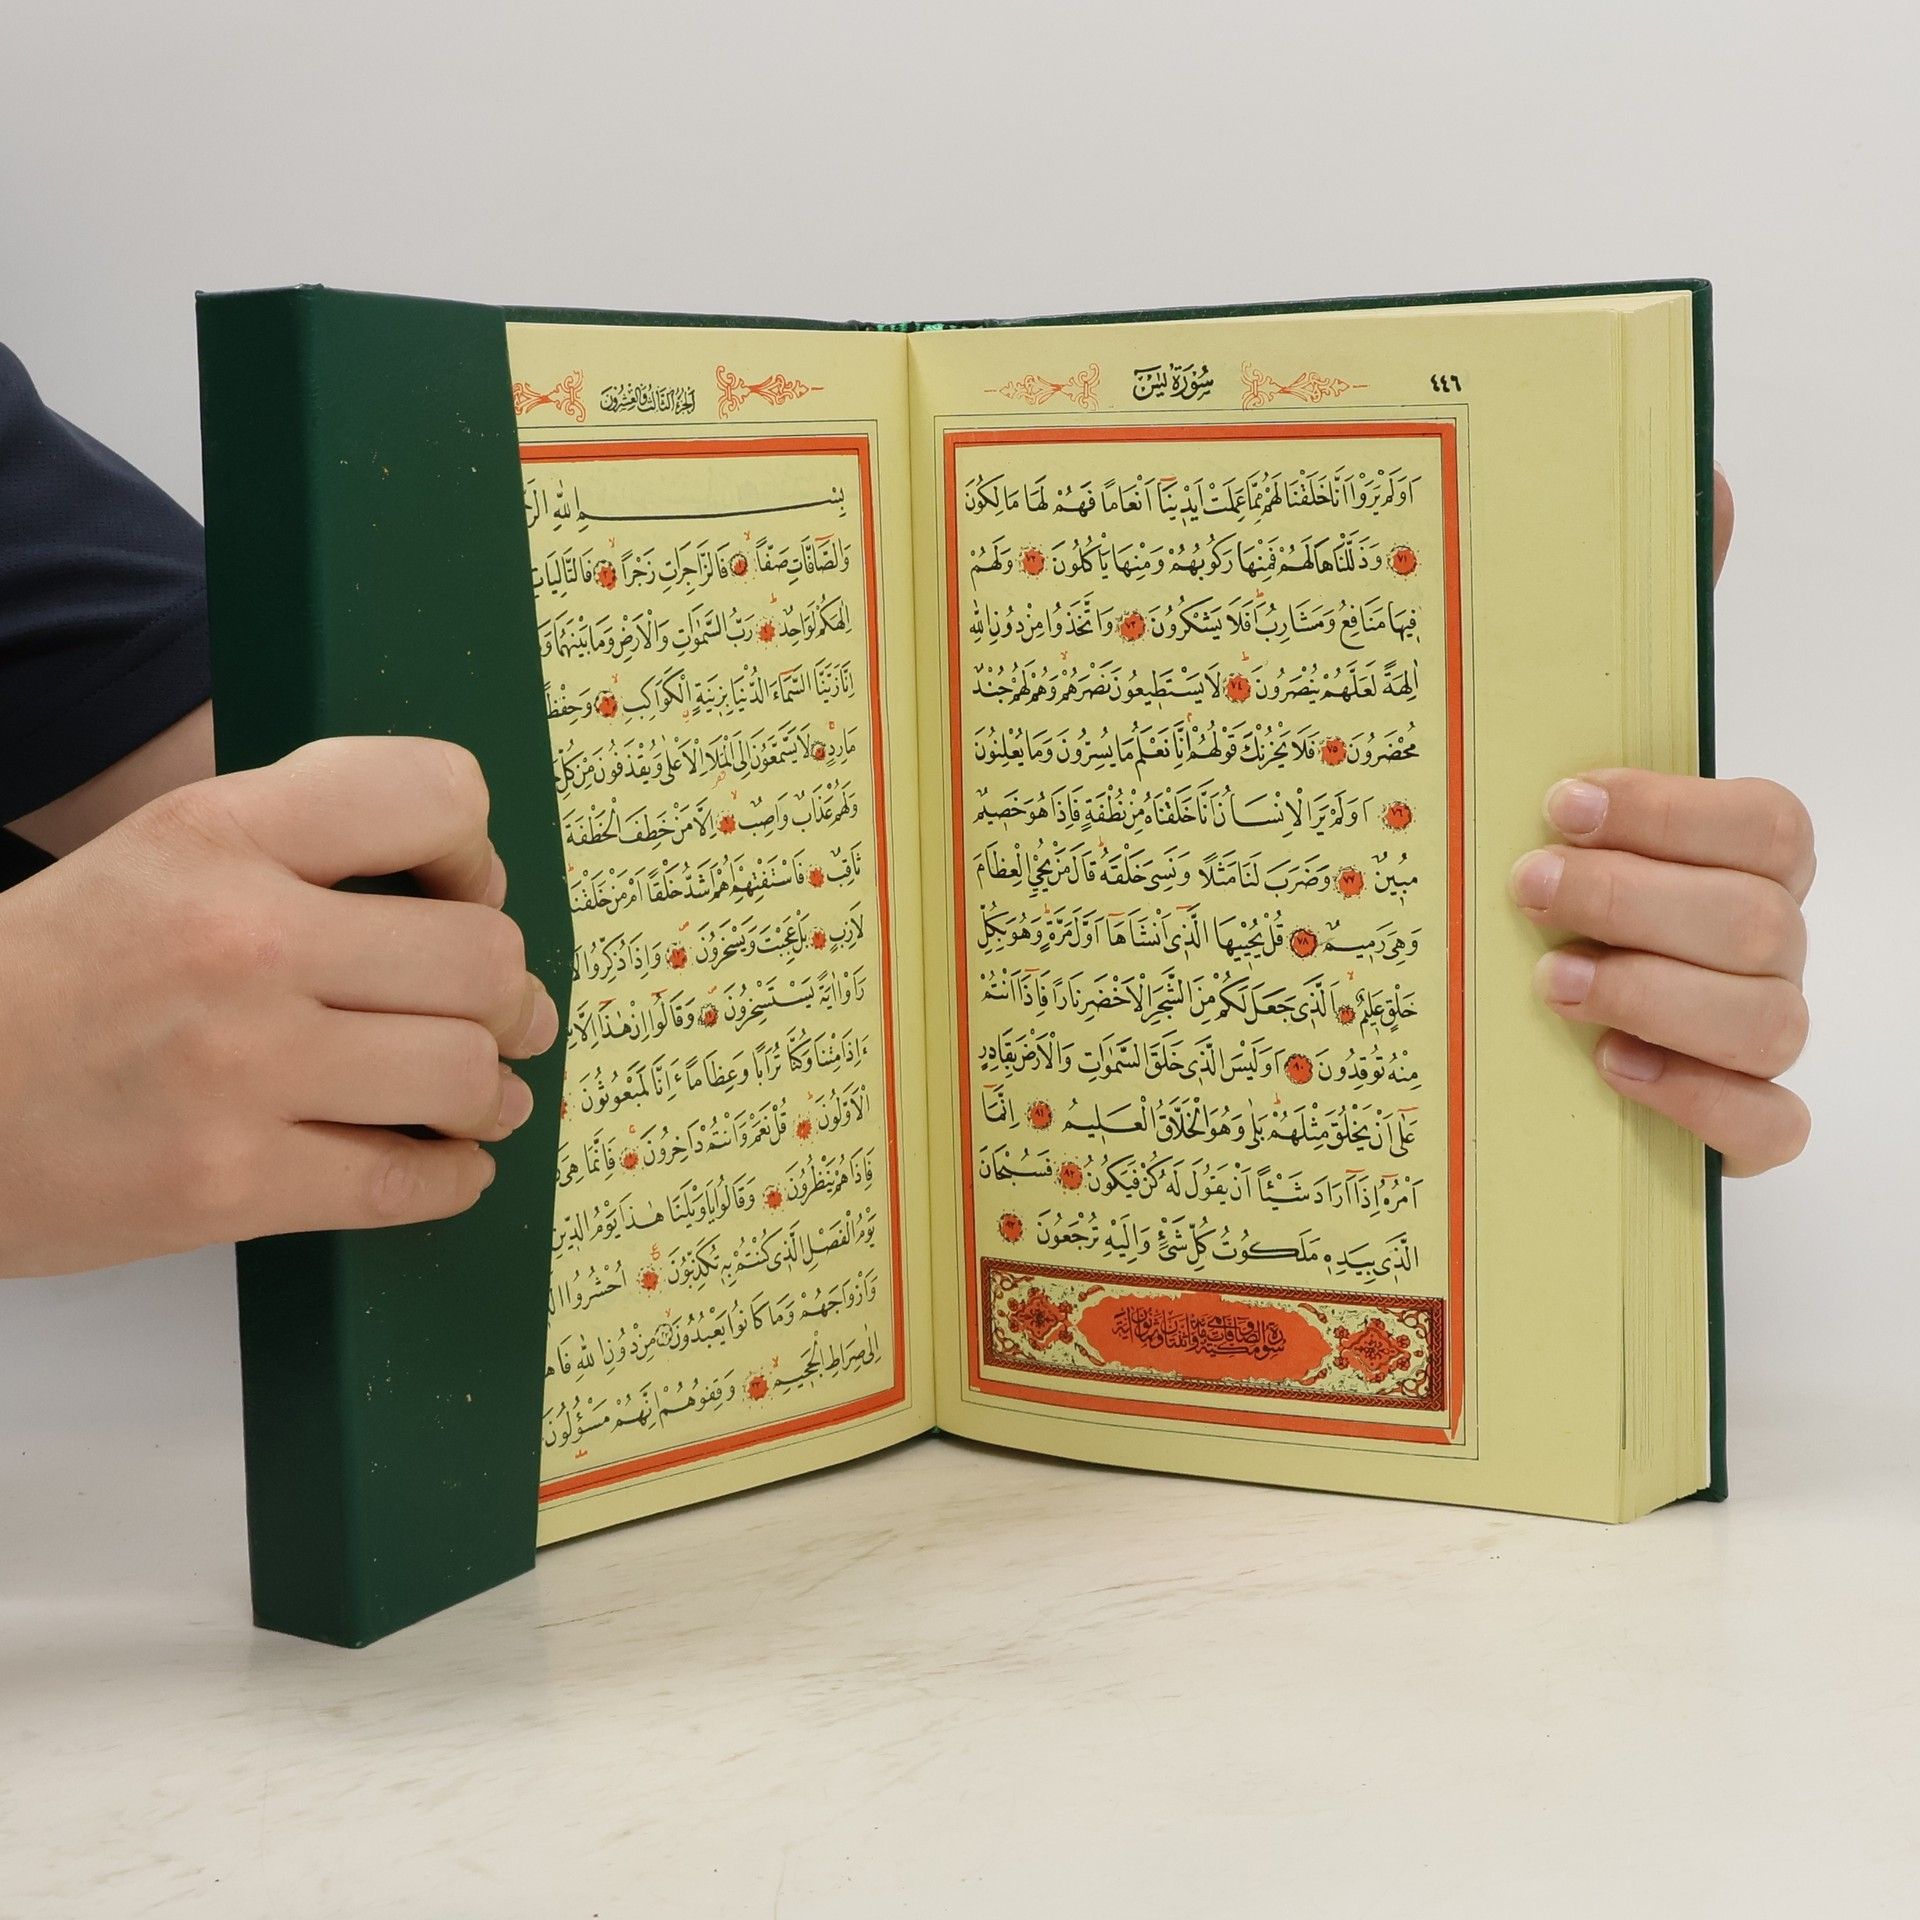 ٤٤٦ سُورَةُ يٰسٓ
اَوَلَمْ يَرَوْا اَنَّا خَلَقْنَا لَهُمْ مِمَّا عَمِلَتْ اَيْدِينَٓا اَنْعَاماً فَهُمْ لَهَا مَالِكُونَ
٧١ وَذَلَّلْنَاهَا لَهُمْ فَمِنْهَا رَكُوبُهُمْ وَمِنْهَا يَأْكُلُونَ ٧٢ وَلَهُمْ
فِيهَا مَنَافِعُ وَمَشَارِبُ اَفَلَا يَشْكُرُونَ ٧٣ وَاتَّخَذُوا مِنْ دُونِ اللّٰهِ
اٰلِهَةً لَعَلَّهُمْ يُنْصَرُونَ ٧٤ لَا يَسْتَطِيعُونَ نَصْرَهُمْ وَهُمْ لَهُمْ جُنْدٌ
مُحْضَرُونَ ٧٥ فَلَا يَحْزُنْكَ قَوْلُهُمْ اِنَّا نَعْلَمُ مَا يُسِرُّونَ وَمَا يُعْلِنُونَ
٧٦ اَوَلَمْ يَرَ الْاِنْسَانُ اَنَّا خَلَقْنَاهُ مِنْ نُطْفَةٍ فَاِذَا هُوَ خَصِيمٌ
مُبِينٌ ٧٧ وَضَرَبَ لَنَا مَثَلًا وَنَسِيَ خَلْقَهُ قَالَ مَنْ يُحْيِ الْعِظَامَ
وَهِيَ رَمِيمٌ ٧٨ قُلْ يُحْيِيهَا الَّذِٓي اَنْشَاَهَٓا اَوَّلَ مَرَّةٍ وَهُوَ بِكُلِّ
خَلْقٍ عَلِيمٌ ٧٩ اَلَّذِي جَعَلَ لَكُمْ مِنَ الشَّجَرِ الْاَخْضَرِ نَاراً فَاِذَٓا اَنْتُمْ
مِنْهُ تُوقِدُونَ ٨٠ اَوَلَيْسَ الَّذِي خَلَقَ السَّمٰوَاتِ وَالْاَرْضَ بِقَادِرٍ
عَلٰٓى اَنْ يَخْلُقَ مِثْلَهُمْ بَلٰى وَهُوَ الْخَلَّاقُ الْعَلِيمُ ٨١ اِنَّمَٓا
اَمْرُهُٓ اِذَٓا اَرَادَ شَيْئاً اَنْ يَقُولَ لَهُ كُنْ فَيَكُونُ ٨٢ فَسُبْحَانَ
الَّذِي بِيَدِهِ مَلَكُوتُ كُلِّ شَيْءٍ وَاِلَيْهِ تُرْجَعُونَ ٨٣
سورة الصافات مكية وهي مائة واثنتان وثمانون اية
اَلْجُزْءُ الثَّالِثُ وَالْعِشْرُونَ
بِسْمِ اللّٰهِ
وَالصَّٓافَّاتِ صَفّاً ١ فَالزَّاجِرَاتِ زَجْراً ٢ فَالتَّالِيَاتِ
اِلٰهَكُمْ لَوَاحِدٌ ٤ رَبُّ السَّمٰوَاتِ وَالْاَرْضِ وَمَا بَيْنَهُمَا
اِنَّا زَيَّنَّا السَّمَٓاءَ الدُّنْيَا بِزِينَةٍ الْكَوَاكِبِ ٦ وَحِفْظاً
مَارِدٍ ٧ لَا يَسَّمَّعُونَ اِلَى الْمَلَاِ الْاَعْلٰى وَيُقْذَفُونَ مِنْ كُلِّ
وَلَهُمْ عَذَابٌ وَاصِبٌ ٩ اِلَّا مَنْ خَطِفَ الْخَطْفَةَ
ثَاقِبٌ ١٠ فَاسْتَفْتِهِمْ اَهُمْ اَشَدُّ خَلْقاً اَمْ مَنْ خَلَقْنَا
لَازِبٍ ١١ بَلْ عَجِبْتَ وَيَسْخَرُونَ ١٢ وَاِذَا ذُكِّرُوا
رَاَوْا اٰيَةً يَسْتَسْخِرُونَ ١٤ وَقَالُٓوا اِنْ هٰذَٓا اِلَّا
ءَاِذَا مِتْنَا وَكُنَّا تُرَاباً وَعِظَاماً ءَاِنَّا لَمَبْعُوثُونَ
الْاَوَّلُونَ ١٧ قُلْ نَعَمْ وَاَنْتُمْ دَاخِرُونَ ١٨ فَاِنَّمَا هِيَ
فَاِذَا هُمْ يَنْظُرُونَ ١٩ وَقَالُوا يَا وَيْلَنَا هٰذَا يَوْمُ الدِّينِ
يَوْمُ الْفَصْلِ الَّذِي كُنْتُمْ بِهِ تُكَذِّبُونَ ٢١ اُحْشُرُوا
وَاَزْوَاجَهُمْ وَمَا كَانُوا يَعْبُدُونَ ٢٢ مِنْ دُونِ اللّٰهِ
اِلٰى صِرَاطِ الْجَحِيمِ ٢٣ وَقِفُوهُمْ اِنَّهُمْ مَسْؤُلُونَ